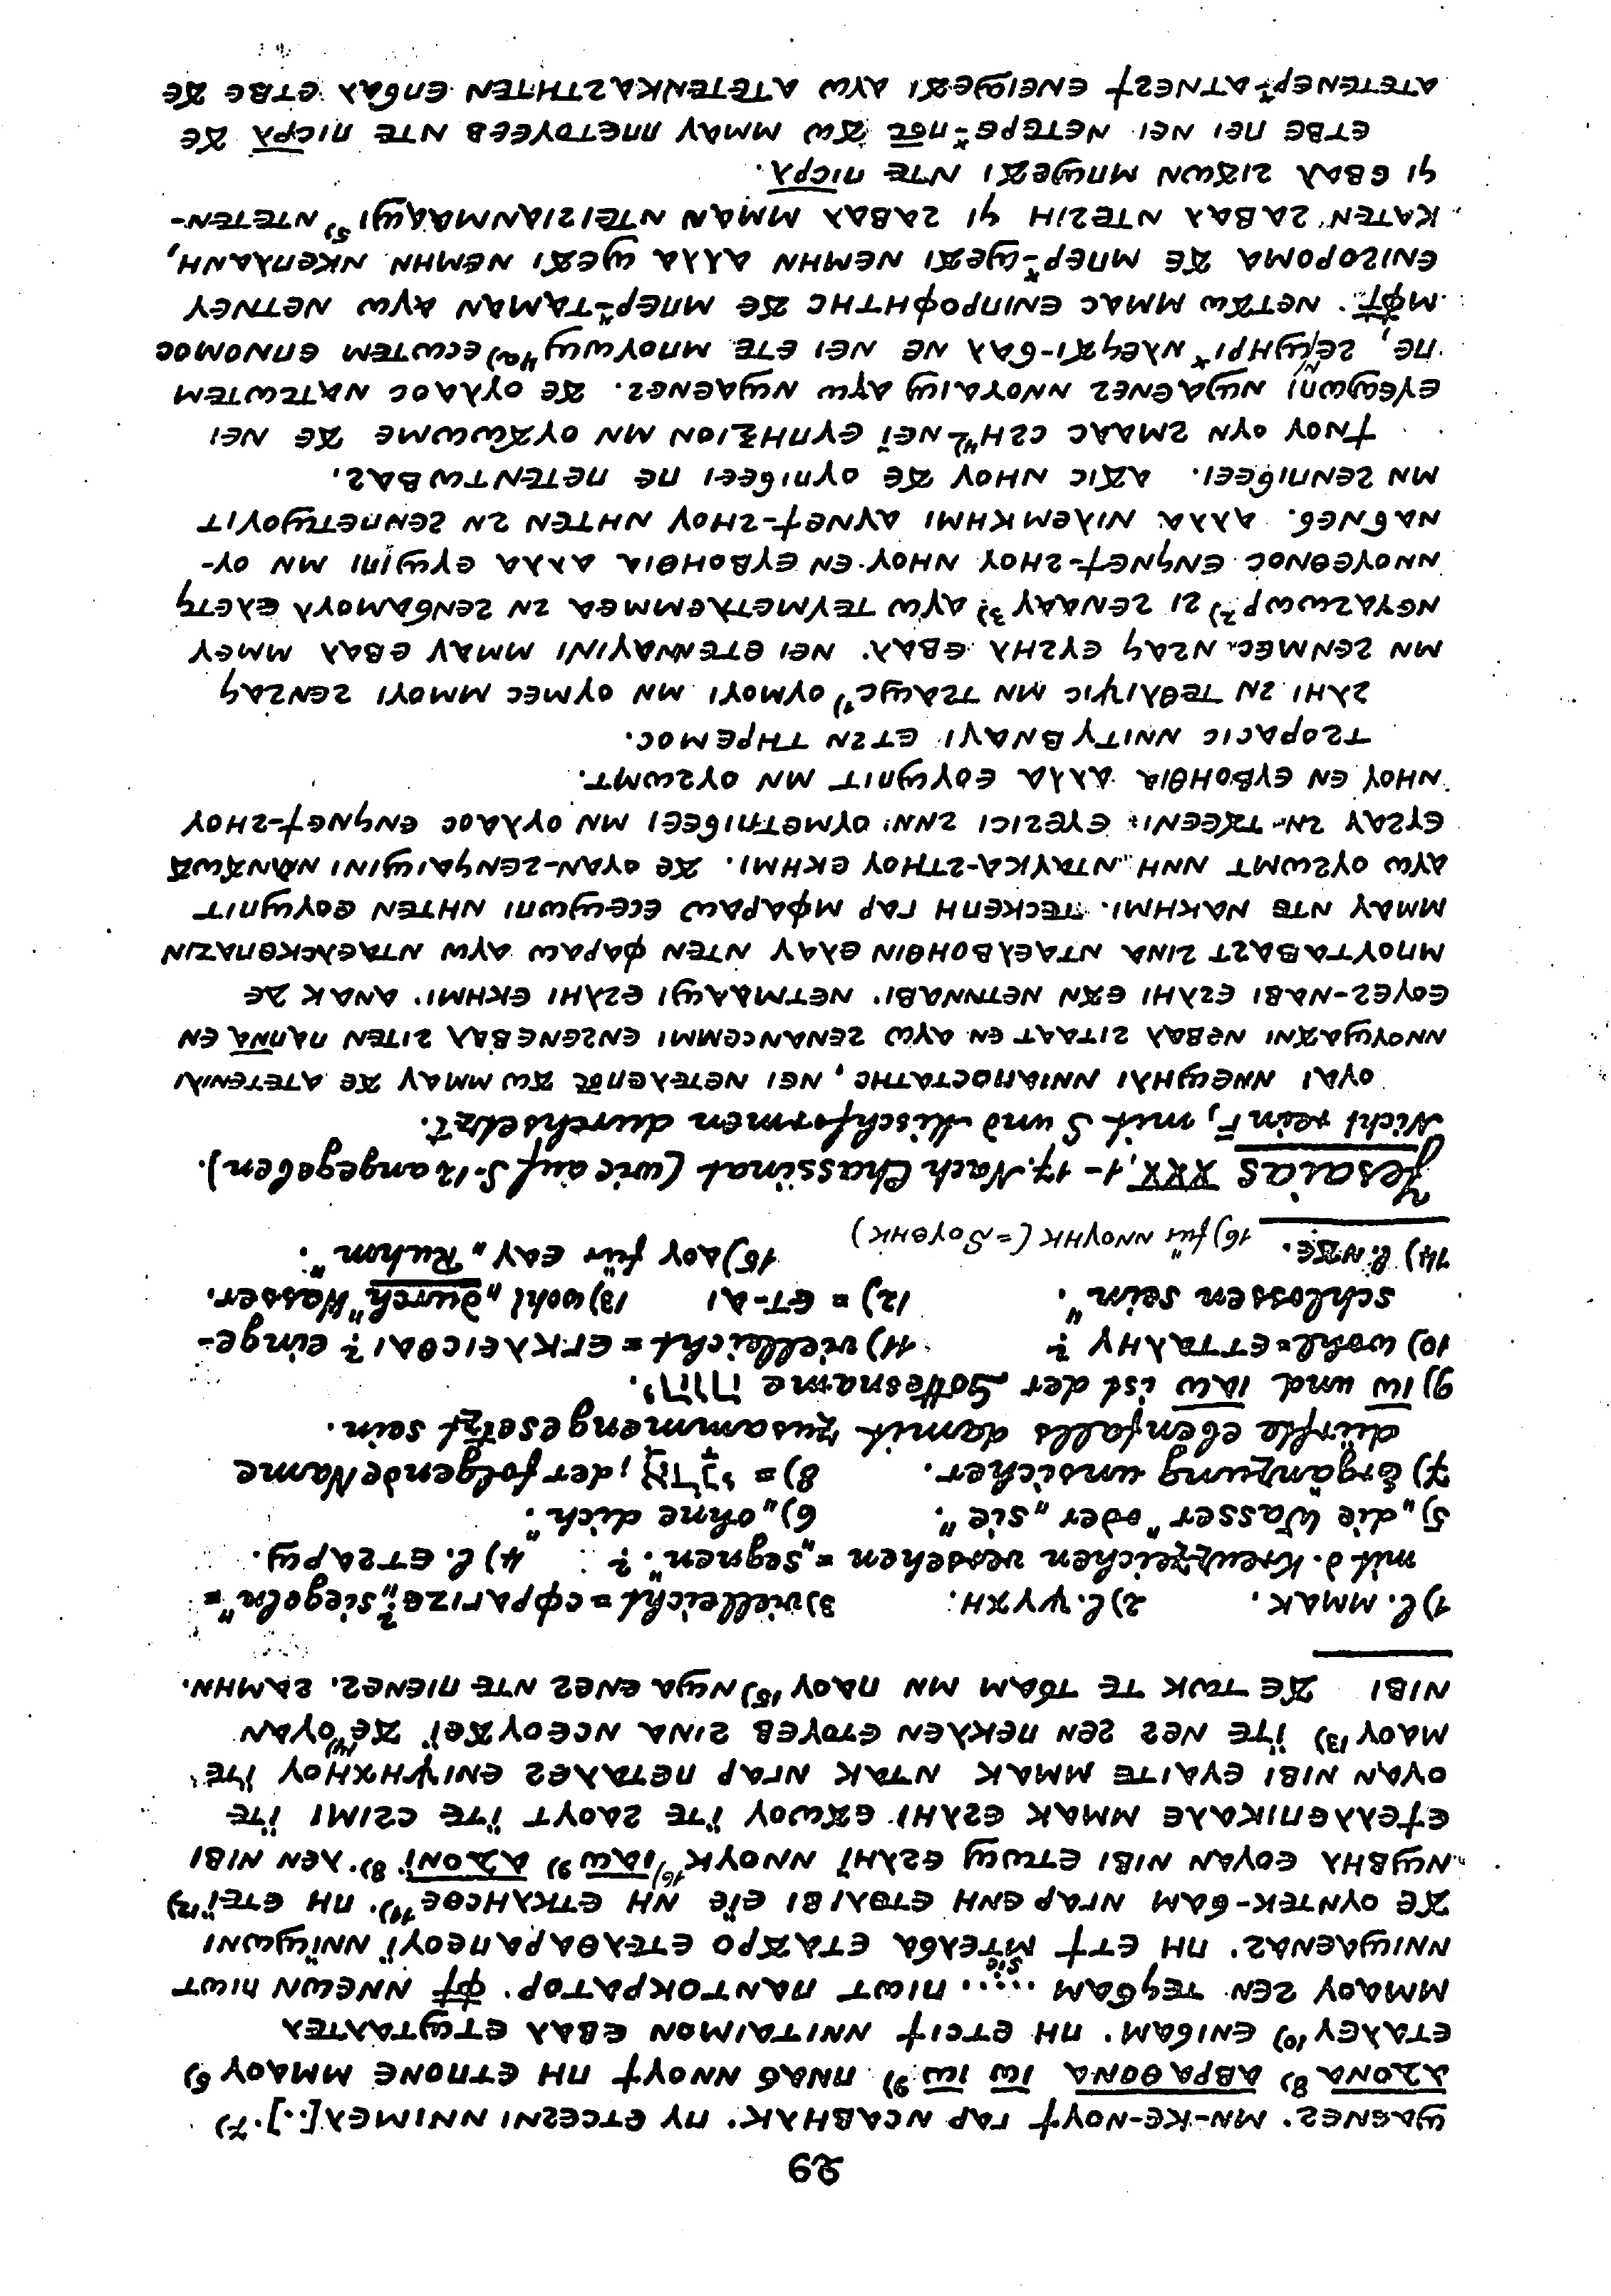 29
ϣⲁⲉⲛⲉϩ. ⲙⲛ-ⲕⲉ-ⲛⲟⲩϯ ⲅⲁⲣ ⲛⲥⲁⲃⲏⲗⲕ. ⲡⲩ ⲉⲧⲥⲉϩⲛⲓ ⲛⲛⲓⲙⲉⲗ[..].7)
ⲁⲇⲟⲛⲁ 8) ⲁⲃⲣⲁⲑⲟⲛⲁ ⲓⲱ ⲓⲱ 9) ⲡⲛⲁϭ ⲛⲛⲟⲩϯ ⲡⲏ ⲉⲧⲡⲟⲛⲉ ⲙⲙⲁⲟⲩ 6)
ⲉⲧⲁⲗⲉⲩ 10) ⲉⲛⲓϭⲁⲙ. ⲡⲏ ⲉⲧⲥⲓϯ ⲛⲛⲓⲧⲁⲓⲙⲟⲛ ⲉⲃⲁⲗ ⲉⲧϣⲧⲁⲗⲧⲉⲗ
ⲙⲙⲁⲟⲩ ϩⲉⲛ ⲧⲉϥϭⲁⲙ ..... ⲡⲓⲱⲧ ⲡⲁⲛⲧⲟⲕⲣⲁⲧⲟⲣ. ⲫϯ ⲛⲛⲉⲱⲛ ⲡⲓⲱⲧ
ⲛⲛⲓϣⲁⲉⲛⲁϩ. ⲡⲏ ⲉⲧϯ ⲙⲧⲉⲗϭⲁ ⲉⲧⲁϫⲣⲟ ⲉⲧⲉⲗⲑⲁⲣⲁⲡⲉⲟⲩⲓ̈ ⲛⲛⲓ̈ϣⲱⲛⲓ
ϫⲉ ⲟⲩⲛⲧⲉⲕ-ϭⲁⲙ ⲛⲅⲁⲣ ⲉⲛⲏ ⲉⲧⲑⲗⲓⲃⲓ ⲉⲓ̈ⲉ ⲛⲏ ⲉⲧⲕⲗⲏⲥⲑⲉ 11). ⲡⲏ ⲉⲧⲉⲓ̈ 12)
ⲛϣⲃⲏⲗ ⲉⲟⲩⲁⲛ ⲛⲓⲃⲓ ⲉⲧⲱϣ ⲉϩⲗⲏⲓ̈ ⲛⲛⲟⲩⲕ 16) ⲓⲁⲱ 9) ⲁⲇⲟⲛⲓ̈ 8). ⲗⲉⲛ ⲛⲓⲃⲓ
ⲉϯⲉⲗⲉⲡⲓⲕⲁⲗⲉ ⲙⲙⲁⲕ ⲉϩⲗⲏⲓ ⲉϫⲱⲟⲩ ⲓ̈ⲧⲉ ϩⲁⲟⲩⲧ ⲓ̈ⲧⲉ ⲥϩⲓⲙⲓ ⲓ̈ⲧⲉ
ⲟⲩⲁⲛ ⲛⲓⲃⲓ ⲉⲩⲁⲓⲧⲉ ⲙⲙⲁⲕ ⲛⲧⲁⲕ ⲛⲅⲁⲣ ⲡⲉⲧⲁⲗⲉϩ ⲉⲛⲓⲯⲏⲭⲏⲟⲩ ⲓ̈ⲧⲉ
ⲙⲁⲟⲩ 13) ⲓ̈ⲧⲉ ⲛⲉϩ ϩⲉⲛ ⲡⲉⲕⲗⲉⲛ ⲉⲧⲟⲩⲉⲃ ϩⲓⲛⲁ ⲛⲥⲉⲟⲩϫⲉⲓ̈ ϫⲉ 14) ⲟⲩⲁⲛ
ⲛⲓⲃⲓ ϫⲉ ⲧⲱⲕ ⲧⲉ ⲧϭⲁⲙ ⲙⲛ ⲡⲁⲟⲩ 15) ⲛϣⲁ ⲉⲛⲉϩ ⲛⲧⲉ ⲡⲓⲉⲛⲉϩ. ϩⲁⲙⲏⲛ.
1) l. ⲙⲙⲁⲕ. 2) l. ⲯⲩⲭⲏ. 3) vielleicht = ⲥⲫⲣⲁⲅⲓⲍⲉ, „siegeln“ =
mit d. Kreuzzeichen versehen = „segnen“? 4) l. ⲉⲧϩⲁⲣϣ.
5) „die Wasser“ oder „sie“. 6) „ohne dich“.
7) Ergänzung unsicher. 8) = אֲדֹנָי; der folgende Name
dürfte ebenfalls damit zusammengesetzt sein.
9) ⲓⲱ und ⲓⲁⲱ ist der Gottesname יהוה.
10) wohl = ⲉⲧⲧⲁⲗⲏⲩ? 11) vielleicht = ⲉⲅⲕⲗⲉⲓⲥⲑⲁⲓ? einge-
schlossen sein“. 12) = ⲉⲧ-ⲁⲓ 13) wohl „durch“ Wasser.
14) l. ⲛϫⲉ. 15) ⲁⲟⲩ für ⲉⲁⲩ „Ruhm“.
16) für ⲛⲛⲟⲩⲏⲕ (= S ⲟⲩⲑⲏⲕ)
Jesaias XXX, 1-17. Nach Chassinat (wie auf S. 12 angegeben).
Nicht rein F, mit S und Mischformen durchsetzt.
ⲟⲩⲁⲓ ⲛⲛⲉϣⲏⲗⲓ ⲛⲛⲓⲁⲡⲟⲥⲧⲁⲧⲏⲥ, ⲛⲉⲓ ⲛⲉⲧⲉⲗⲉⲡϭⲥ ϫⲱ ⲙⲙⲁⲩ ϫⲉ ⲁⲧⲉⲧⲉⲛⲓⲗⲓ
ⲛⲛⲟⲩϣⲁϫⲛⲓ ⲛⲉⲃⲁⲗ ϩⲓⲧⲁⲁⲧ ⲉⲛ ⲁⲩⲱ ϩⲉⲛⲁⲛⲥⲉⲙⲙⲓ ⲉⲛϩⲉⲛⲉⲃⲁⲗ ϩⲓⲧⲉⲛ ⲡⲁⲡⲛⲁ ⲉⲛ
ⲉⲟⲩⲉϩ-ⲛⲁⲃⲓ ⲉϩⲗⲏⲓ ⲉϫⲛ ⲛⲉⲧⲛⲛⲁⲃⲓ. ⲛⲉⲧⲙⲁⲁϣⲓ ⲉϩⲗⲏⲓ ⲉⲕⲏⲙⲓ. ⲁⲛⲁⲕ ⲇⲉ
ⲙⲡⲟⲩⲧⲁⲃⲁϩⲧ ϩⲓⲛⲁ ⲛⲧⲁⲉⲗⲃⲟⲏⲑⲓⲛ ⲉⲗⲁⲩ ⲛⲧⲉⲛ ⲫⲁⲣⲁⲱ ⲁⲩⲱ ⲛⲧⲁⲉⲗⲥⲕⲉⲡⲁⲍⲓⲛ
ⲙⲙⲁⲩ ⲛⲧⲉ ⲛⲁⲕⲏⲙⲓ. ⲧⲉⲥⲕⲉⲡⲏ ⲅⲁⲣ ⲙⲫⲁⲣⲁⲱ ⲉⲥⲉϣⲱⲡⲓ ⲛⲏⲧⲉⲛ ⲉⲟⲩϣⲡⲓⲧ
ⲁⲩⲱ ⲟⲩϩⲱⲙⲧ ⲛⲛⲏ ⲛⲧⲁⲩⲕⲁ-ϩⲧⲏⲟⲩ ⲉⲕⲏⲙⲓ. ϫⲉ ⲟⲩⲁⲛ-ϩⲉⲛϥⲁⲓϣⲓⲛⲓ ⲛⲁⲛϫⲱϫ
ⲉⲩϩⲁⲩ ϩⲛ ⲧϫⲉⲉⲛⲓ: ⲉⲩⲉϩⲓⲥⲓ ϩⲛⲛ ⲟⲩⲙⲉⲧⲡⲓϭⲉⲉⲓ ⲙⲛ ⲟⲩⲗⲁⲟⲥ ⲉⲛϥⲛⲉϯ-ϩⲏⲟⲩ
ⲛⲏⲟⲩ ⲉⲛ ⲉⲩⲃⲟⲏⲑⲓⲁ ⲁⲗⲗⲁ ⲉⲟⲩϣⲡⲓⲧ ⲙⲛ ⲟⲩϩⲱⲙⲧ.
ⲧϩⲟⲣⲁⲥⲓⲥ ⲛⲛⲓⲧⲩⲃⲛⲁⲩⲓ ⲉⲧϩⲛ ⲧⲏⲣⲉⲙⲟⲥ.
ϩⲗⲏⲓ ϩⲛ ⲧⲉⲑⲗⲓⲯⲓⲥ ⲙⲛ ⲧϩⲁϣⲥ 1) ⲟⲩⲙⲟⲩⲓ ⲙⲛ ⲟⲩⲙⲉⲥ ⲙⲙⲟⲩⲓ ϩⲉⲛϩⲁϥ
ⲙⲛ ϩⲉⲛⲙⲉⲥ ⲛϩⲁϥ ⲉⲩϩⲏⲗ ⲉⲃⲁⲗ. ⲛⲉⲓ ⲉⲧⲉⲛⲛⲁⲩⲓⲛⲓ ⲙⲙⲁⲩ ⲉⲃⲁⲗ ⲙⲙⲉⲩ
ⲛⲉⲩⲁϩⲱⲱⲣ 2) ϩⲓ ϩⲉⲛⲁⲁⲩ 3) ⲁⲩⲱ ⲧⲉⲩⲙⲉⲧⲗⲉⲙⲙⲉⲁ ϩⲛ ϩⲉⲛϭⲁⲙⲟⲩⲗ ⲉⲗⲉⲧϥ
ⲛⲛⲟⲩⲉⲑⲛⲟⲥ ⲉⲛϥⲛⲉϯ-ϩⲏⲟⲩ ⲛⲏⲟⲩ ⲉⲛ ⲉⲩⲃⲟⲏⲑⲓⲁ ⲁⲗⲗⲁ ⲉⲩϣⲓⲡⲓ ⲙⲛ ⲟⲩ-
ⲛⲁϭⲛⲉϭ. ⲁⲗⲗⲁ ⲛⲓⲗⲉⲙⲕⲏⲙⲓ ⲁⲩⲛⲉϯ-ϩⲏⲟⲩ ⲛⲏⲧⲉⲛ ϩⲛ ϩⲉⲛⲡⲉⲧϣⲟⲩⲓⲧ
ⲙⲛ ϩⲉⲛⲡⲓϭⲉⲉⲓ. ⲁϫⲓⲥ ⲛⲏⲟⲩ ϫⲉ ⲟⲩⲡⲓϭⲉⲉⲓ ⲡⲉ ⲡⲉⲧⲉⲛⲧⲱⲃⲁϩ.
ϯⲛⲟⲩ ⲟⲩⲛ ϩⲙⲁⲁⲥ ⲥϩⲏ 4) ⲛⲉⲓ̈ ⲉⲩⲡⲏⲝⲓⲟⲛ ⲙⲛ ⲟⲩϫⲱⲱⲙⲉ ϫⲉ ⲛⲉⲓ
ⲉⲩⲉϣⲱⲡⲓ ⲛϣⲁⲉⲛⲉϩ ⲛⲛⲟⲩⲁⲓϣ ⲁⲩⲱ ⲛϣⲁⲉⲛⲉϩ. ϫⲉ ⲟⲩⲗⲁⲟⲥ ⲛⲁⲧⲥⲱⲧⲉⲙ
ⲡⲉ, ϩⲉⲛϣⲏⲣⲓ ⲛⲗⲉϥϫⲓ-ϭⲁⲗ ⲛⲉ ⲛⲉⲓ ⲉⲧⲉ ⲙⲡⲟⲩⲱϣ 4a) ⲉⲥⲱⲧⲉⲙ ⲉⲡⲛⲟⲙⲟⲥ
ⲙⲫϯ. ⲛⲉⲧϫⲱ ⲙⲙⲁⲥ ⲉⲛⲓⲡⲣⲟⲫⲏⲧⲏⲥ ϫⲉ ⲙⲡⲉⲣ-ⲧⲁⲙⲁⲛ ⲁⲩⲱ ⲛⲉⲧⲛⲉⲩ
ⲉⲛⲓϩⲟⲣⲟⲙⲁ ϫⲉ ⲙⲡⲉⲣ-ϣⲉϫⲓ ⲛⲉⲙⲏⲛ ⲁⲗⲗⲁ ϣⲉϫⲓ ⲛⲉⲙⲏⲛ ⲛⲕⲉⲡⲗⲁⲛⲏ,
ⲕⲁⲧⲉⲛ ϩⲁⲃⲁⲗ ⲛⲧⲉϩⲓⲏ ϥⲓ ϩⲁⲃⲁⲗ ⲙⲙⲁⲛ ⲛⲧⲉⲓϩⲓⲁⲛⲙⲁⲁϣⲓ 5) ⲛⲧⲉⲧⲉⲛ-
ϥⲓ ⲉⲃⲁⲗ ϩⲓϫⲱⲛ ⲙⲡϣⲉϫⲓ ⲛⲧⲉ ⲡⲓⲥⲣⲗ.
ⲉⲧⲃⲉ ⲡⲉⲓ ⲛⲉⲓ ⲛⲉⲧⲉⲣⲉ-ⲡϭⲥ ϫⲱ ⲙⲙⲁⲩ ⲡⲡⲉⲧⲟⲩⲉⲉⲃ ⲛⲧⲉ ⲡⲓⲥⲣⲗ ϫⲉ
ⲁⲧⲉⲧⲉⲛⲉⲣ-ⲁⲧⲛⲉϩϯ ⲉⲛⲉⲓϣⲉϫⲓ ⲁⲩⲱ ⲁⲧⲉⲧⲉⲛⲕⲁϩⲧⲏⲧⲉⲛ ⲉⲡϭⲁⲗ ⲉⲧⲃⲉ ϫⲉ